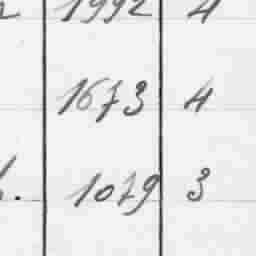 1992 4
1673 4
1079 3